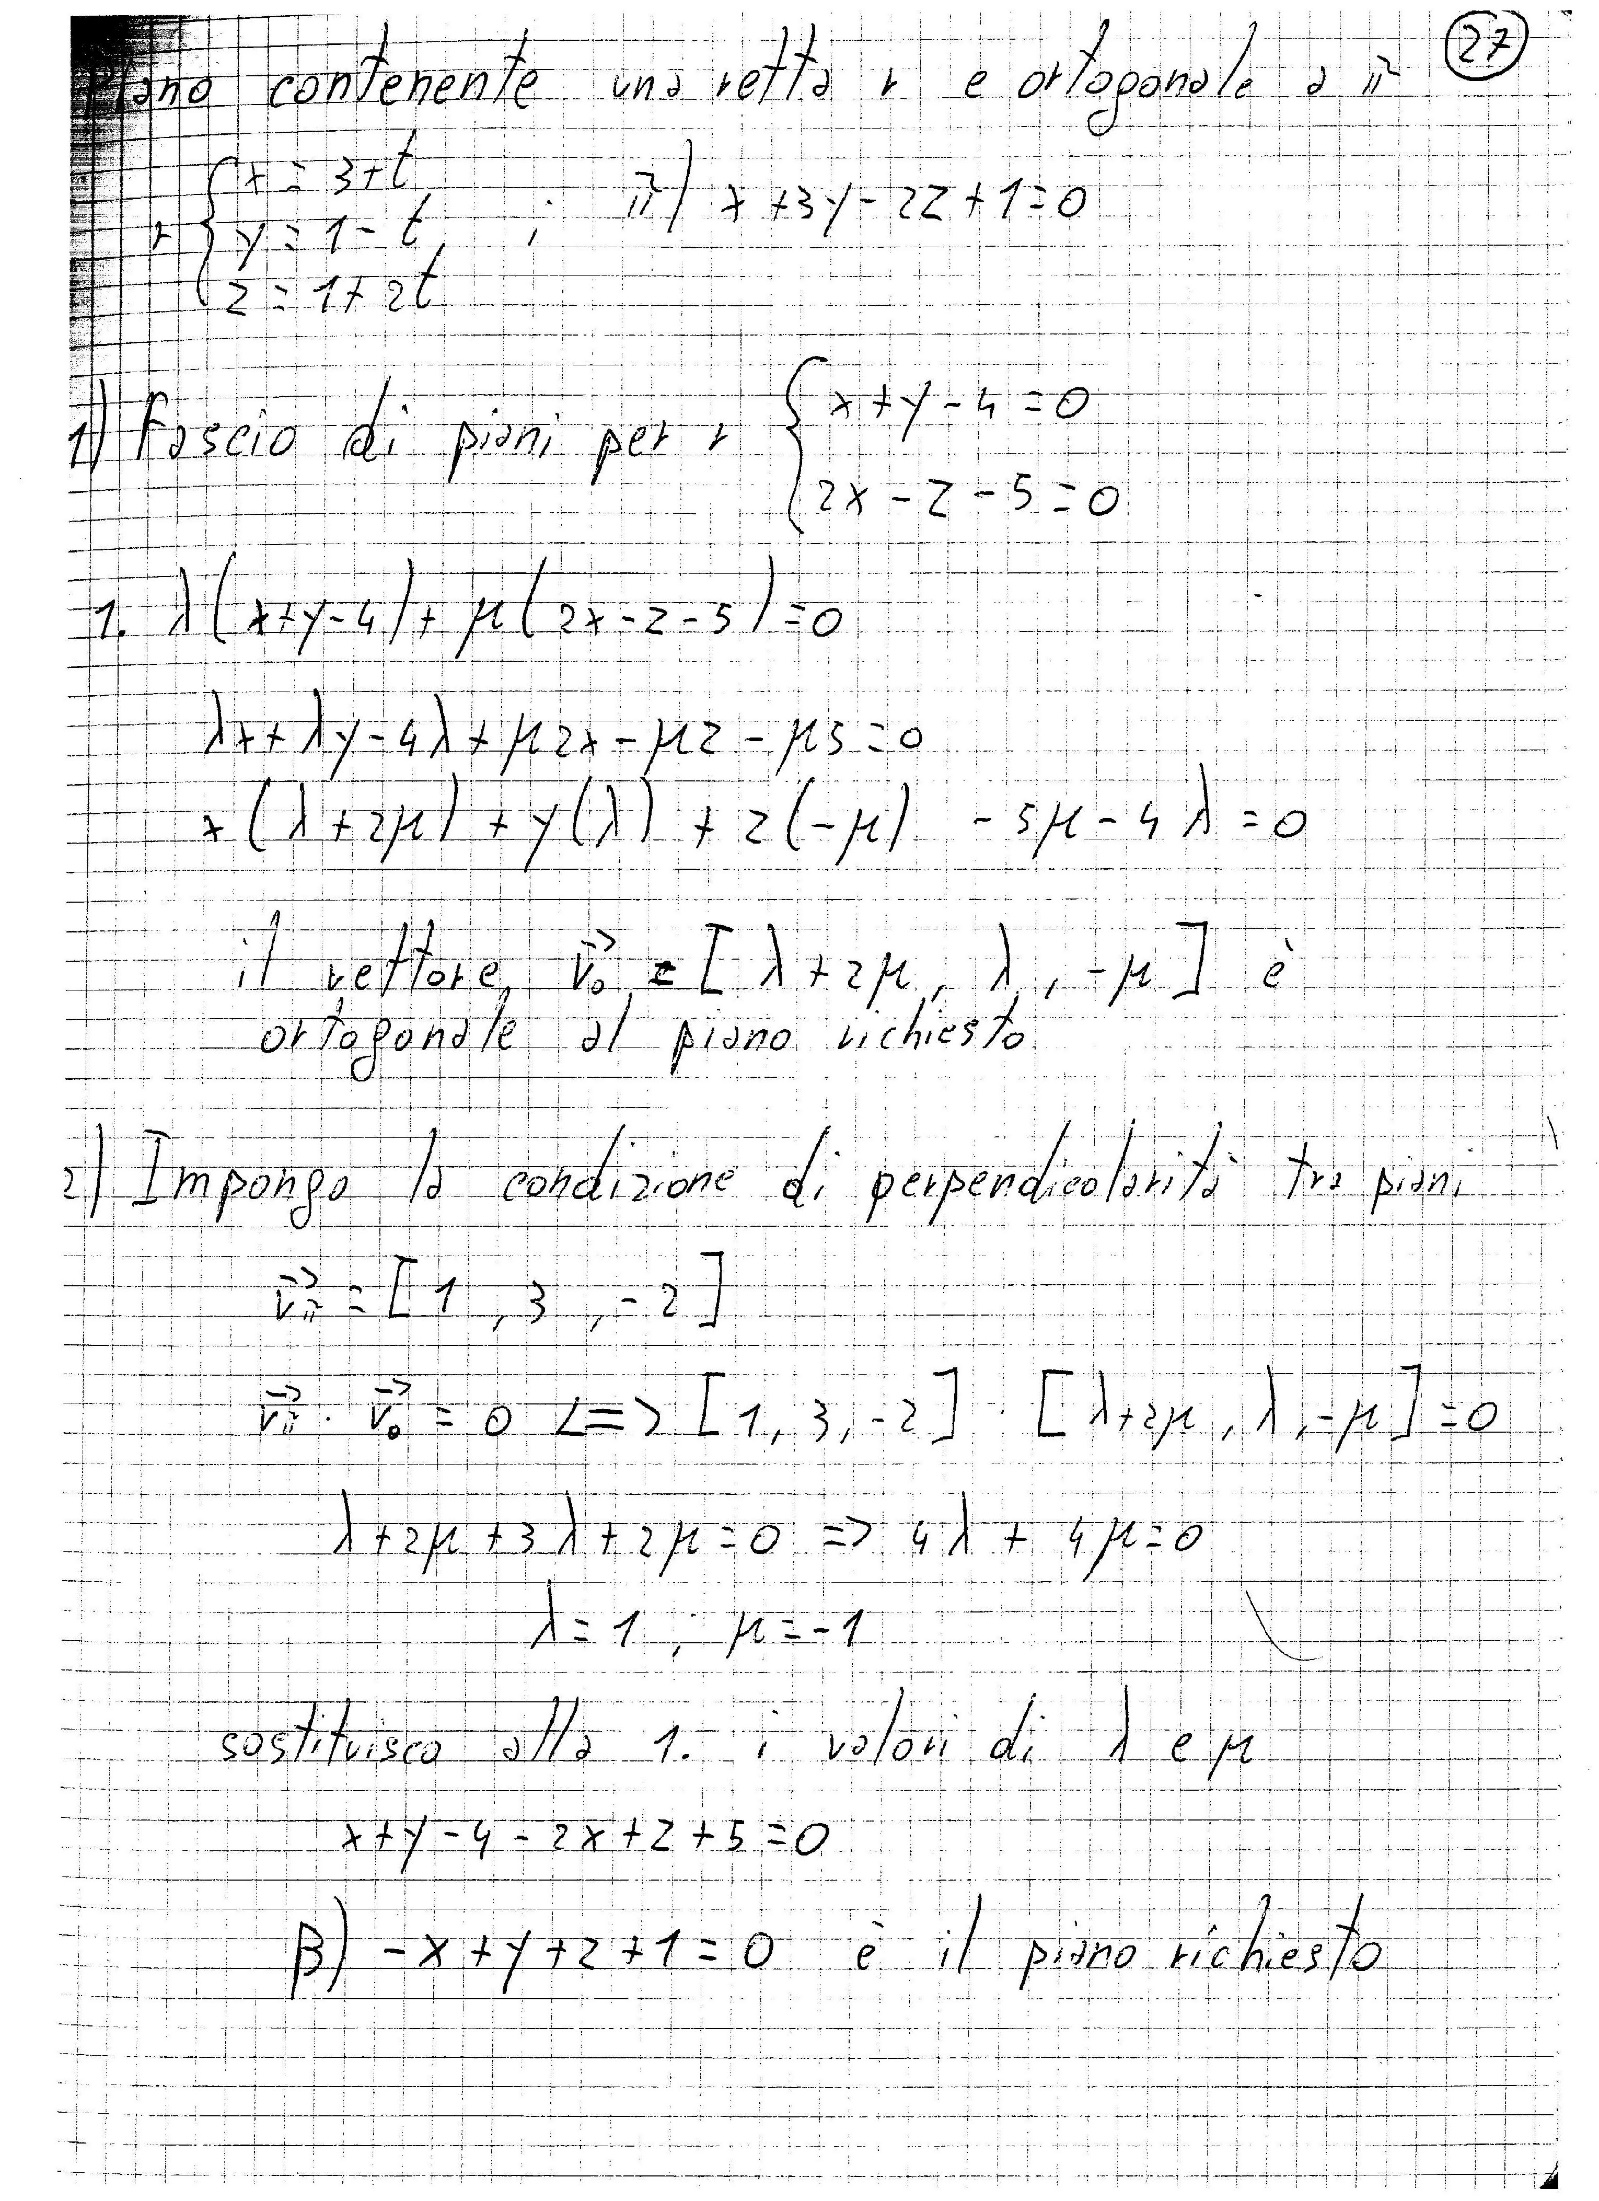 27
Piano contenente una retta r e ortogonale a π
r { x = 3+t
y = 1-t ; π) x+3y-2z+1=0
z = 1+2t
1) Fascio di piani per r { x+y-4=0
2x-z-5=0
1. λ(x+y-4)+μ(2x-z-5)=0
λx+λy-4λ+μ2x-μz-μ5=0
x(λ+2μ)+y(λ)+z(-μ) -5μ-4λ=0
il vettore v₀→ = [λ+2μ, λ, -μ] è
ortogonale al piano richiesto
2) Impongo la condizione di perpendicolarità tra piani
vπ→ = [1, 3, -2]
vπ→ · v₀→ = 0 <=> [1, 3, -2] · [λ+2μ, λ, -μ]=0
λ+2μ+3λ+2μ=0 => 4λ+4μ=0
λ=1 ; μ=-1
sostituisco alla 1. i valori di λ e μ
x+y-4-2x+z+5=0
β) -x+y+z+1=0 è il piano richiesto